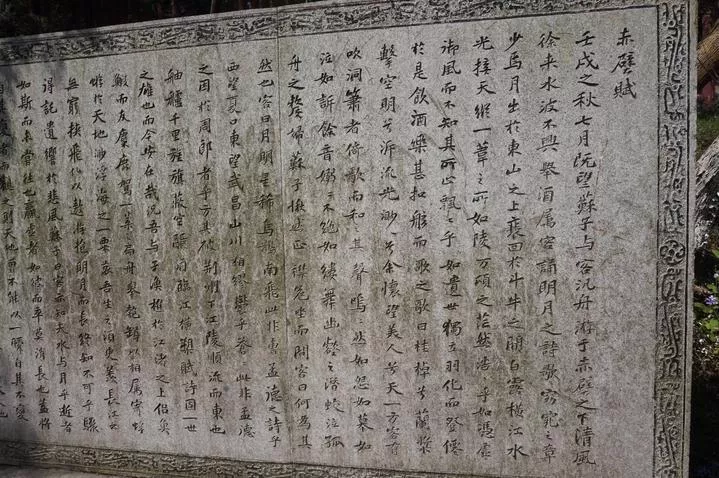 赤壁賦
壬戌之秋七月既望蘇子与客泛舟游于赤壁之下清風
徐来水波不興舉酒属客誦明月之詩歌窈窕之章
少焉月出於東山之上裵回於斗牛之間白露橫江水
光接天縱一葦之所如陵万頃之茫然浩〻乎如憑虛
御風而不知其所止飄〻乎如遺世獨立羽化而登僊
於是飲酒樂甚扣舷而歌之歌曰桂棹兮蘭槳
擊空明兮泝流光渺〻兮余懷望美人兮天一方客有
吹洞簫者倚歌而和之其聲嗚〻然如怨如慕如
泣如訴餘音嫋〻不絶如縷舞幽壑之潜蛟泣孤
舟之嫠婦蘇子愀然正襟危坐而問客曰何為其
然也客曰月明星稀烏鵲南飛此非曹孟德之詩乎
西望夏口東望武昌山川相繆鬱乎蒼〻此非孟德
之困於周郎者乎方其破荆州下江陵順流而東也
舳艫千里旌旗蔽空釃酒臨江橫槊賦詩固一世
之雄也而今安在哉況吾与子漁樵於江渚之上侣魚
鰕而友麋鹿駕一葉之扁舟舉匏樽以相属寄蜉
蝣於天地渺浮海之一粟哀吾生之須臾羡長江之
無窮挾飛仙以遨游抱明月而長終知不可乎驟
得託遺響於悲風蘇子曰客亦知夫水与月乎逝者
如斯而未嘗往也贏虛者如彼而卒莫消長也蓋將
自其變者而觀之則天地曾不能以一瞬自其不變